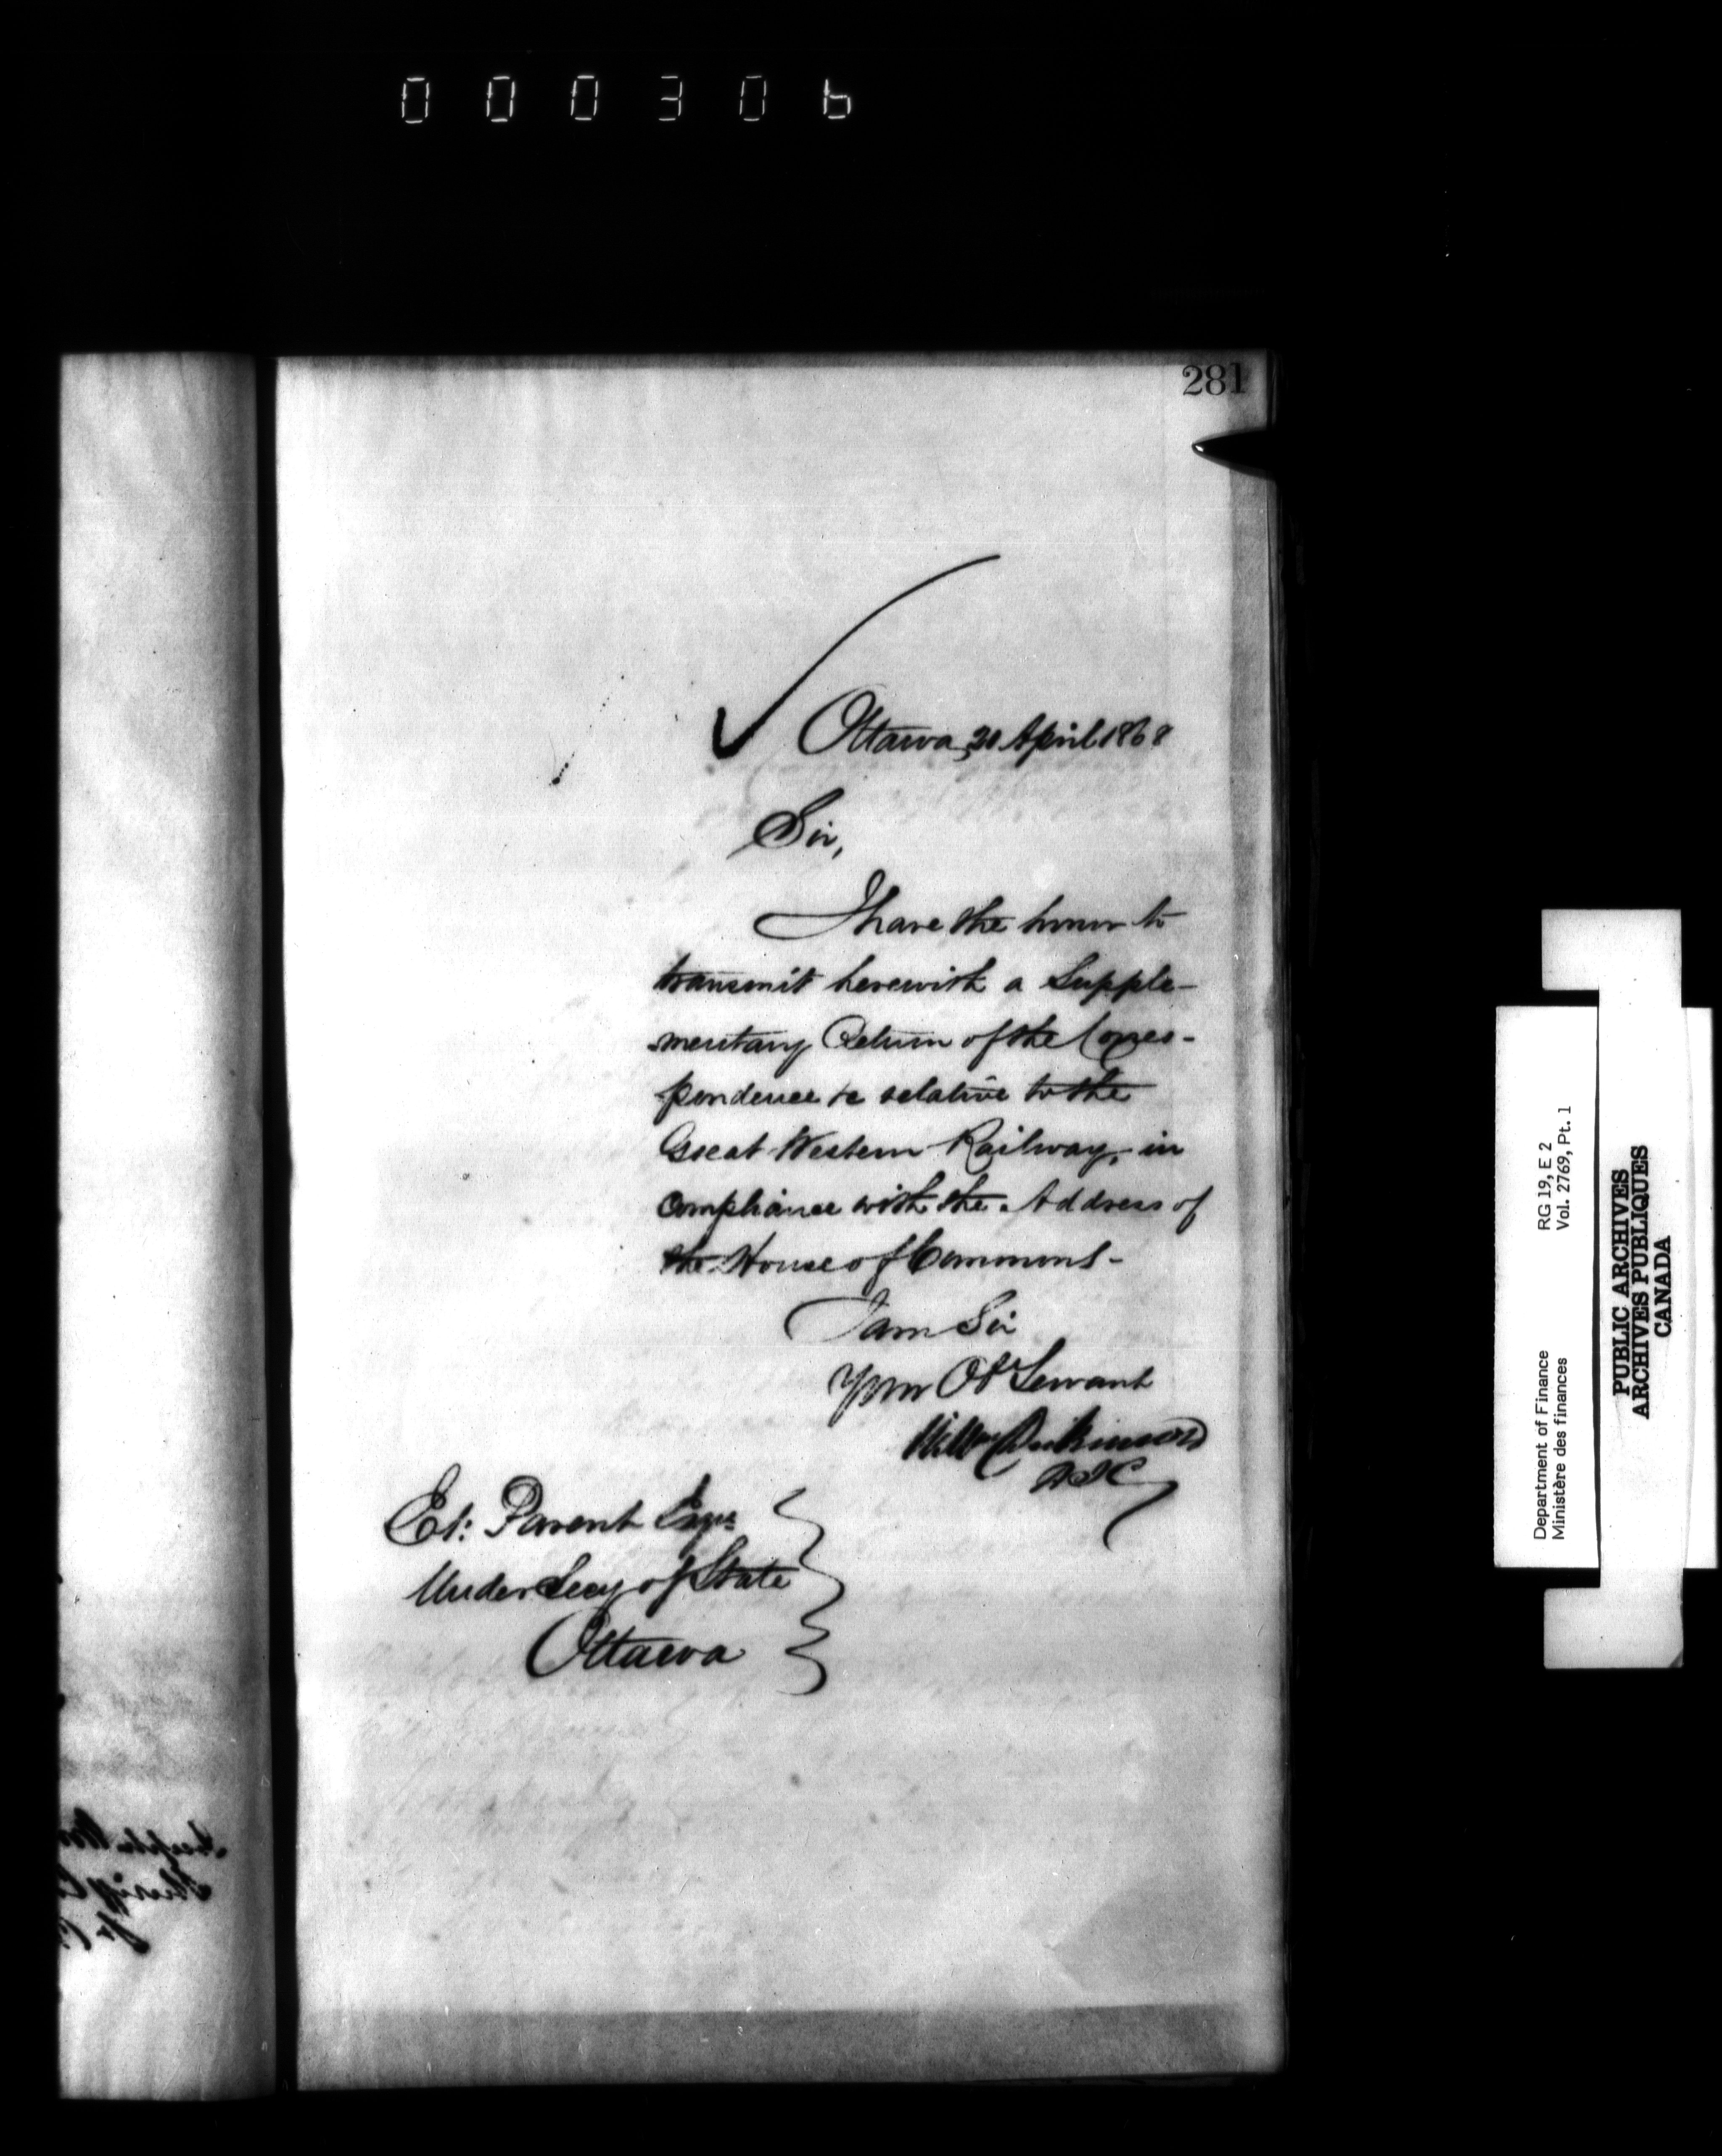 000306
281
Ottawa, 20 April 1868
Sir,
I have the honor to
transmit herewith a Supple-
mentary Return of the Corres-
pondence &c relative to the
Great Western Railway, in
compliance with the Address of
the House of Commons-
I am Sir
Your Obt Servant
Willm Dickinson
A I G
Et: Parent Esqre
Under Secy of State
Ottawa
Department of Finance RG 19, E 2
Ministère des finances Vol. 2769, Pt. 1
PUBLIC ARCHIVES
ARCHIVES PUBLIQUES
CANADA